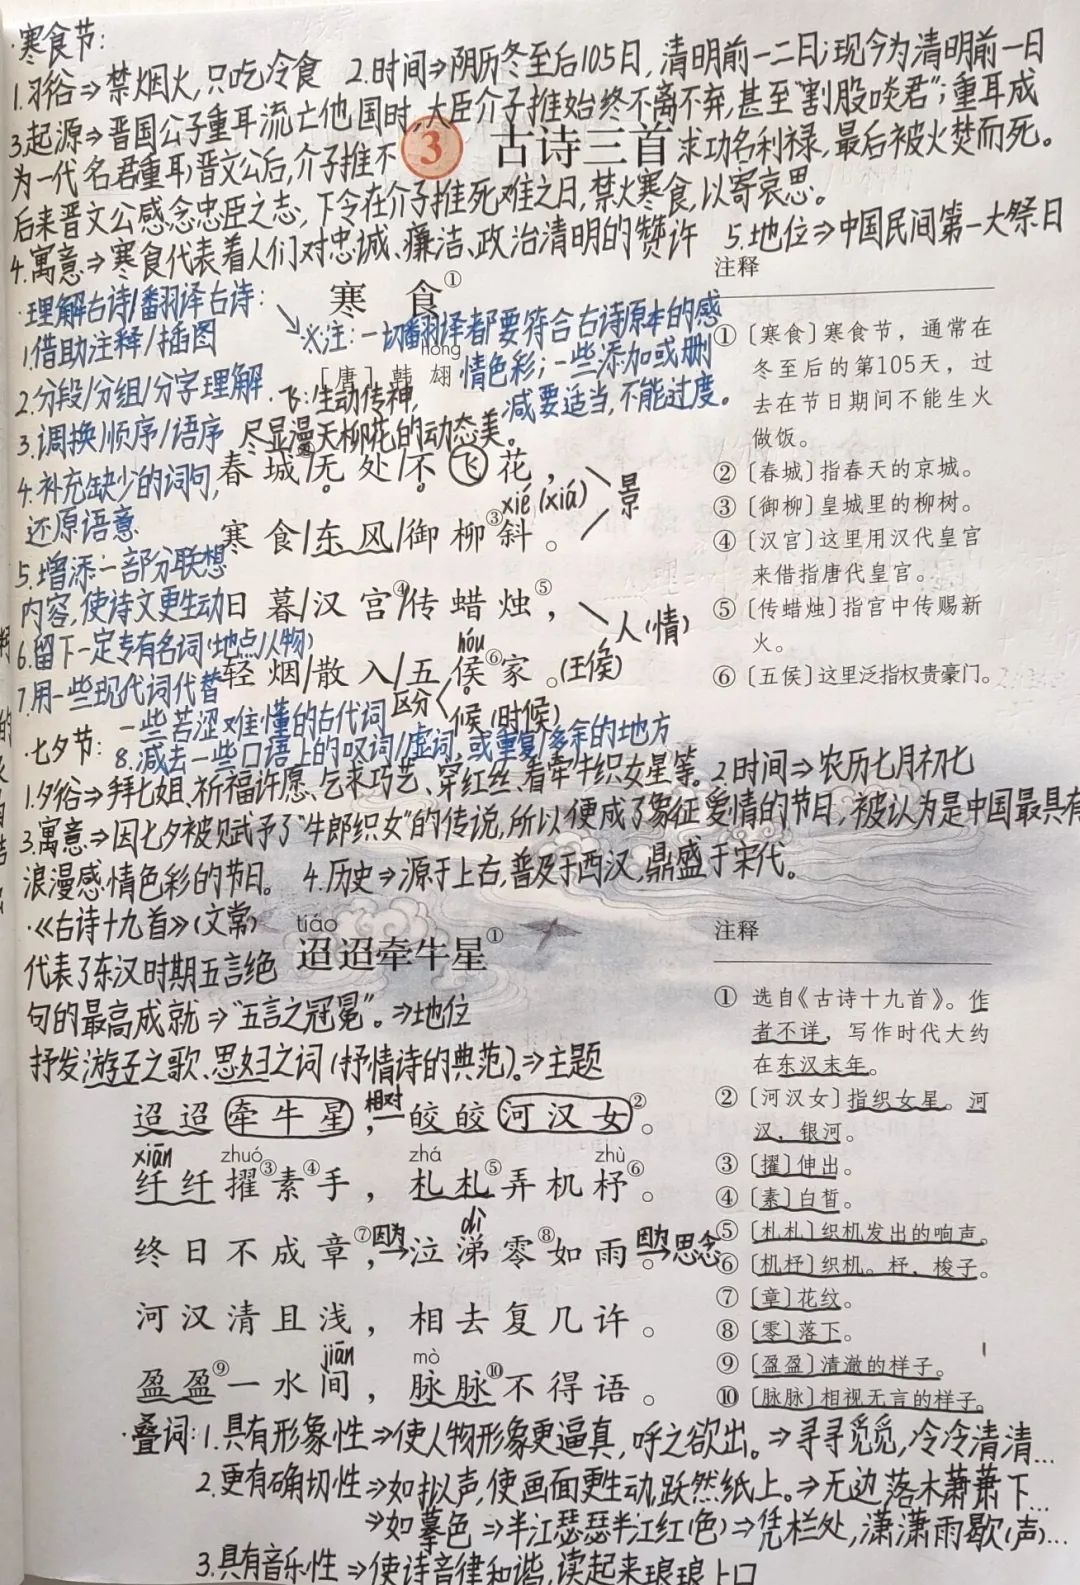 ·寒食节:
1.习俗⇒禁烟火,只吃冷食 2.时间⇒阴历冬至后105日,清明前一二日;现今为清明前一日
3.起源⇒晋国公子重耳流亡他国时,大臣介子推始终不离不弃,甚至"割股啖君";重耳成
为一代名君重耳(晋文公后,介子推不
3 古诗三首
求功名利禄,最后被火焚而死。
后来晋文公感念忠臣之志,下令在介子推死难之日,禁火寒食,以寄哀思。
4.寓意⇒寒食代表着人们对忠诚、廉洁、政治清明的赞许 5.地位⇒中国民间第一大祭日
·理解古诗/翻译古诗:
1.借助注释/插图
2.分段/分组/分字理解
3.调换顺序/语序
4.补充缺少的词句,
还原语意
5.增添一部分联想
内容,使诗文更生动
6.留下一定专有名词(地点/人物)
7.用一些现代词代替
一些苦涩难懂的古代词
8.减去一些口语上的叹词/虚词,或重复/多余的地方
※注:一切翻译者都要符合古诗原本的感
情色彩;一些添加或删
减要适当,不能过度。
寒食①
hóng
[唐]韩翃
·飞:生动传神,
尽显漫天柳花的动态美。
春城②/无处/不飞花,
xié(xiá)
寒食/东风/御柳③斜。
景
日暮/汉宫④/传蜡烛⑤,
hóu
轻烟/散入/五侯⑥家。(王侯)
人(情)
区分 候(时候)
注释
①〔寒食〕寒食节,通常在
冬至后的第105天,过
去在节日期间不能生火
做饭。
②〔春城〕指春天的京城。
③〔御柳〕皇城里的柳树。
④〔汉宫〕这里用汉代皇宫
来借指唐代皇宫。
⑤〔传蜡烛〕指宫中传赐新
火。
⑥〔五侯〕这里泛指权贵豪门。
·七夕节:
1.夕俗⇒拜七姐、祈福许愿、乞求巧艺、穿红丝、看牵牛织女星等。2.时间⇒农历七月初七
3.寓意⇒因七夕被赋予了"牛郎织女"的传说,所以便成了象征爱情的节日,被认为是中国最具有
浪漫感情色彩的节日。 4.历史⇒源于上古,普及于西汉,鼎盛于宋代。
·《古诗十九首》(文常)
代表了东汉时期五言绝
句的最高成就⇒"五言之冠冕"。⇒地位
抒发游子之歌、思妇之词(抒情诗的典范)。⇒主题
tiáo
迢迢牵牛星①
迢迢牵牛星,相对 皎皎河汉女②。
xiān zhuó zhá zhù
纤纤擢③素④手,札札⑤弄机杼⑥。
dì
终日不成章⑦,因为→泣涕零⑧如雨。因为→思念
河汉清且浅,相去复几许。
jiān mò
盈盈⑨一水间,脉脉⑩不得语。
注释
① 选自《古诗十九首》。作
者不详,写作时代大约
在东汉末年。
②〔河汉女〕指织女星。河
汉,银河。
③〔擢〕伸出。
④〔素〕白皙。
⑤〔札札〕织机发出的响声。
⑥〔机杼〕织机。杼,梭子。
⑦〔章〕花纹。
⑧〔零〕落下。
⑨〔盈盈〕清澈的样子。
⑩〔脉脉〕相视无言的样子。
·叠词:1.具有形象性⇒使人物形象更逼真,呼之欲出。⇒寻寻觅觅,冷冷清清…
2.更有确切性⇒如拟声,使画面更生动,跃然纸上。⇒无边落木萧萧下…
⇒如摹色⇒半江瑟瑟半江红(色)⇒凭栏处,潇潇雨歇(声)…
3.具有音乐性⇒使诗音律和谐,读起来琅琅上口